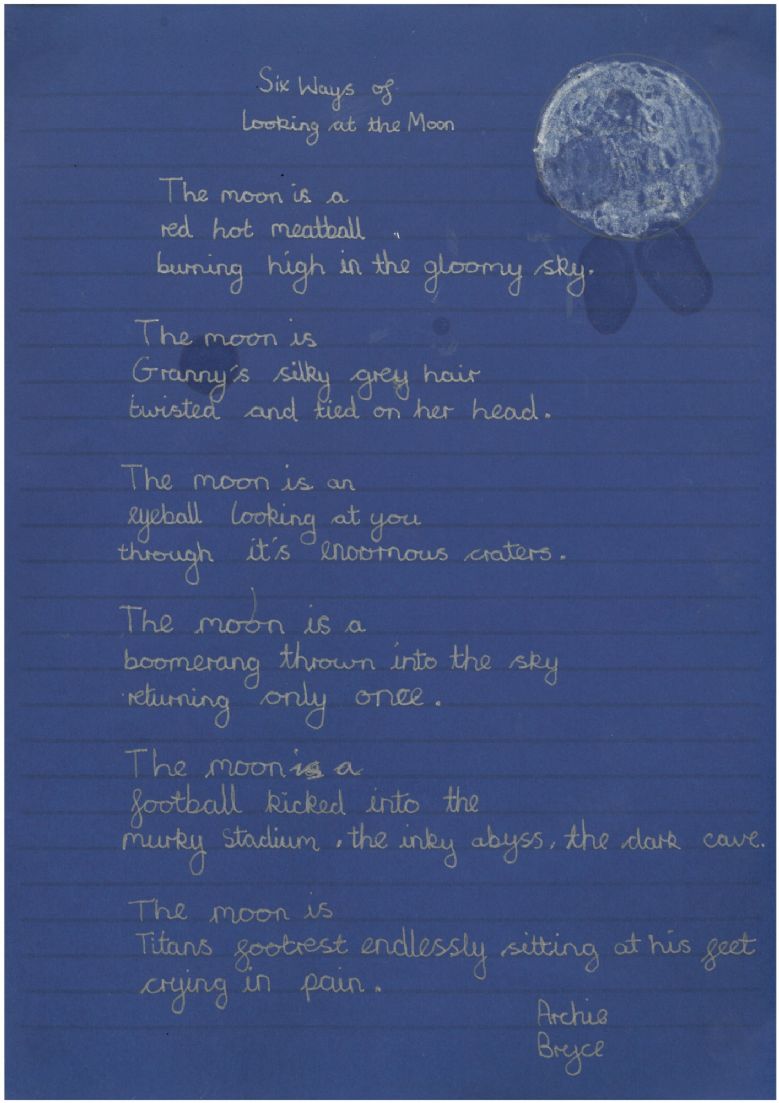 Six Ways of
Looking at the Moon
The moon is a
red hot meatball
burning high in the gloomy sky.
The moon is
Granny's silky grey hair
twisted and tied on her head.
The moon is an
eyeball looking at you
through it's enormous craters.
The moon is a
boomerang thrown into the sky
returning only once.
The moon is a
football kicked into the
murky stadium, the inky abyss, the dark cave.
The moon is
Titans footrest endlessly sitting at his feet
crying in pain.
Archie
Bryce